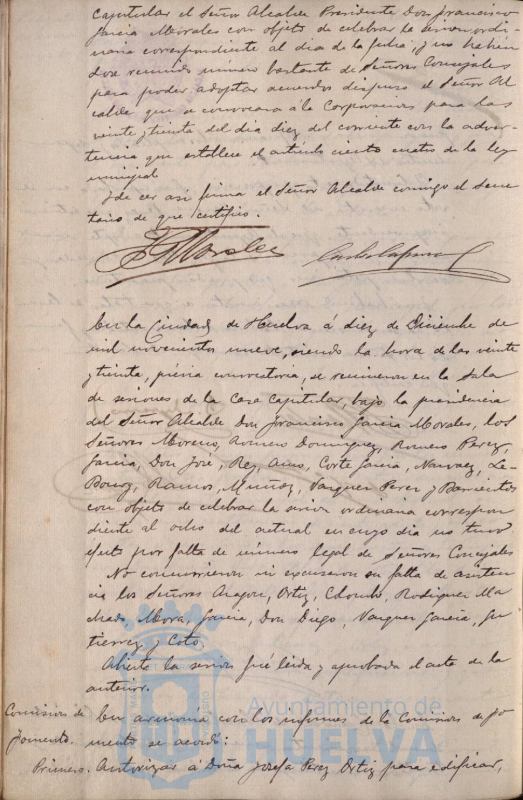 Capitular el Señor Alcalde Presidente Don Francisco
Garcia Morales con objeto de celebrar la sesion ordi-
naria correspondiente al dia de la fecha, y no habien
dose reunido número bastante de Señores Concejales
para poder adoptar acuerdos dispuso el Señor Al
calde que se convocara á la Corporacion para las
veinte y treinta del dia diez del corriente con la adver-
tencia que establece el artículo ciento cuatro de la ley
municipal.
Y de ser asi firma el Señor Alcalde conmigo el Secre
tario de que certifico.
F G Morales
En la Ciudad de Huelva á diez de Diciembre de
mil novecientos nueve, siendo la hora de las veinte
y treinta, prévia convocatoria, se reunieron en la Sala
de sesiones de la Casa Capitular, bajo la presidencia
del Señor Alcalde Don Francisco Garcia Morales, los
Señores Moreno, Romero Dominguez, Romero Perez,
Garcia, Don José, Rey, Amo, Corte Garcia, Narvaez, Le-
Bourg, Ramos, Muñoz, Vazquez Perez y Barrientos
con objeto de celebrar la sesion ordinaria correspon
diente al ocho del actual en cuyo dia no tuvo
efecto por falta de número legal de Señores Concejales
No concurrieron ni excusaron su falta de asisten
cia los Señores Aragon, Ortiz, Rodriguez Ma
chado, Mora, Garcia, Don Diego, Vazquez Garcia, Gu
tierrez y Coto.
Abierta la sesion fué leida y aprobada el acta de la
anterior.
Comision de Fomento.
En armonia con los informes de la Comision de Fo
mento se acordó:
Primero. Autorizar á Doña Josefa Perez Ortiz para edificar,
Ayuntamiento de
HUELVA